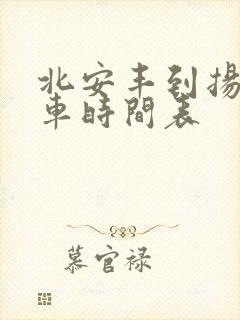 北安丰到揚
車時間表
慕官禄